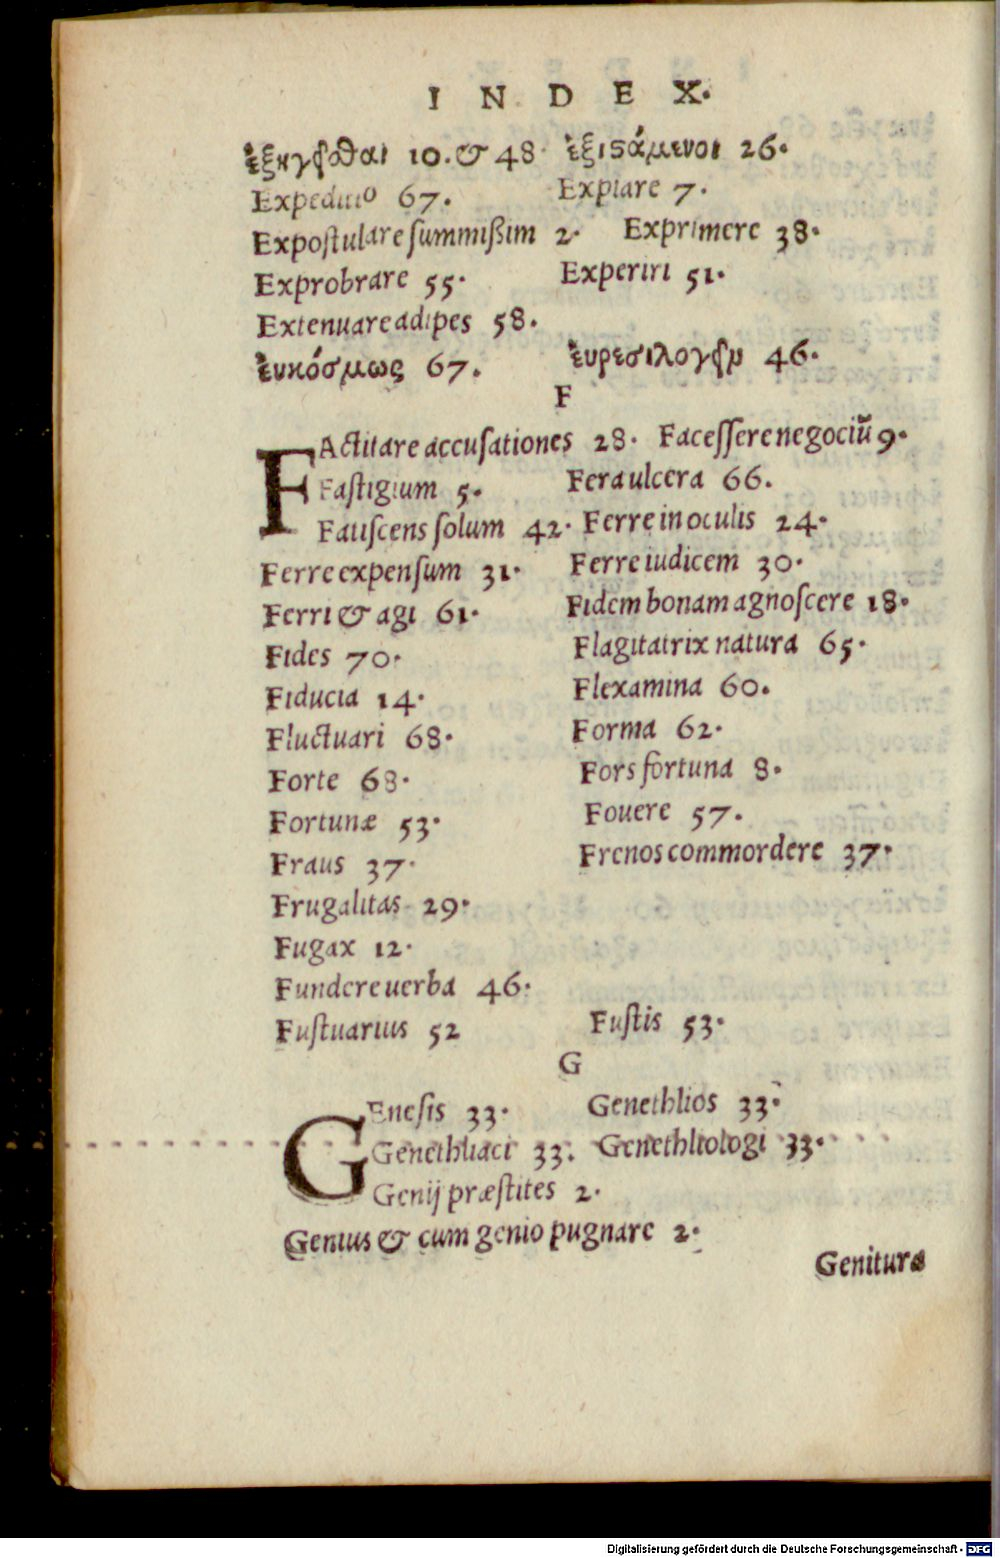 INDEX.
ἐξηγεῖσθαι 10. & 48 ἐξιςάμενοι 26.
Expeditio 67. Expiare 7.
Expoſtulare ſummißim 2. Exprimere 38.
Exprobrare 55. Experiri 51.
Extenuare adipes 58.
ἐυκόσμως 67. ἐυρεσιλογεῖν 46.
F
FActitare accuſationes 28. Faceſſere negociũ 9.
Faſtigium 5. Fera ulcera 66.
Fatiſcens ſolum 42. Ferre in oculis 24.
Ferre expenſum 31. Ferre iudicem 30.
Ferri & agi 61. Fidem bonam agnoſcere 18.
Fides 70. Flagitatrix natura 65.
Fiducia 14. Flexamina 60.
Fluctuari 68. Forma 62.
Forte 68. Fors fortuna 8.
Fortunæ 53. Fouere 57.
Fraus 37. Frenos commordere 37.
Frugalitas 29.
Fugax 12.
Fundere uerba 46.
Fuſtuarius 52 Fuſtis 53.
G
GEneſis 33. Genethlios 33.
Genethliaci 33. Genethliologi 33.
Genij præſtites 2.
Genius & cum genio pugnare 2.
Genituræ
Digitalisierung gefördert durch die Deutsche Forschungsgemeinschaft - DFG